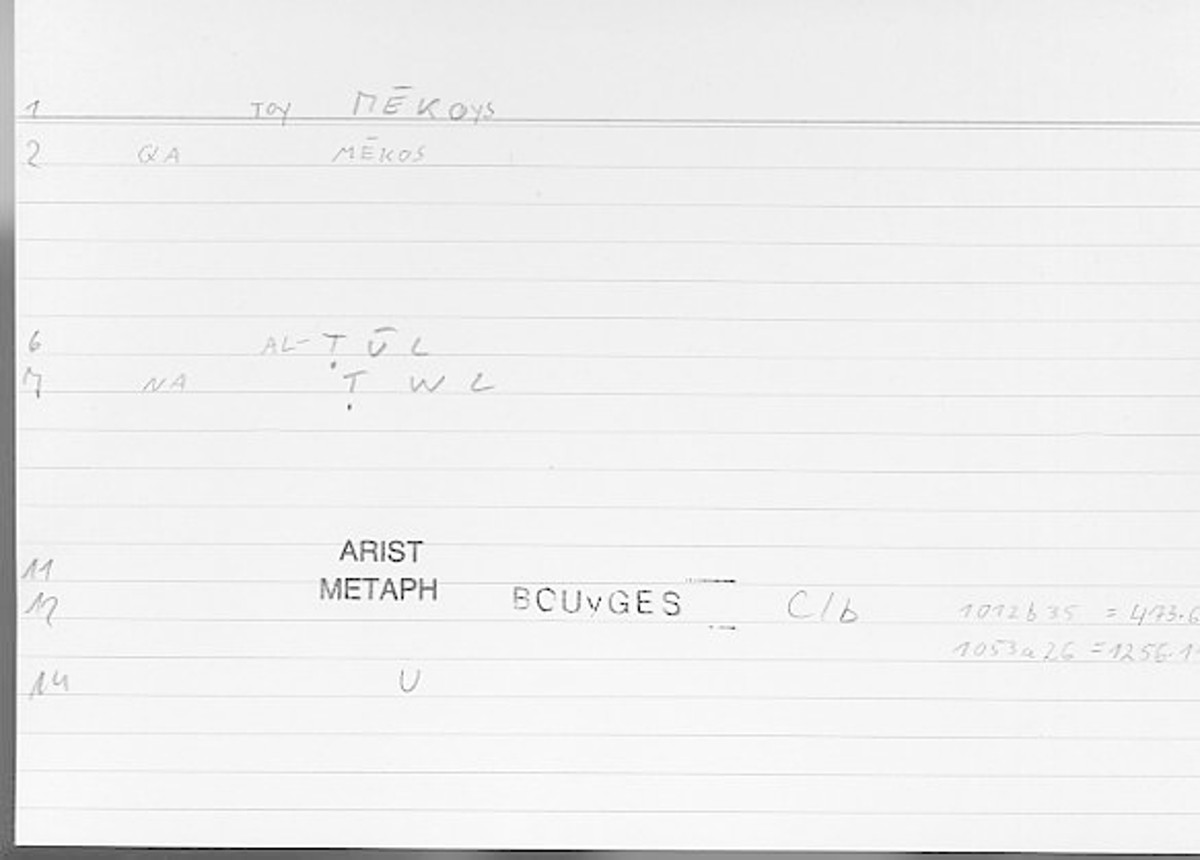 1 TOY MĒKOYS
2 QA MĒKOS
6 AL-ṬŪL
7 NA Ṭ W L
ARIST
11
METAPH
12 BOUvGES C/b 1012b35 = 473.6
1053a26 = 1256.1
14 U